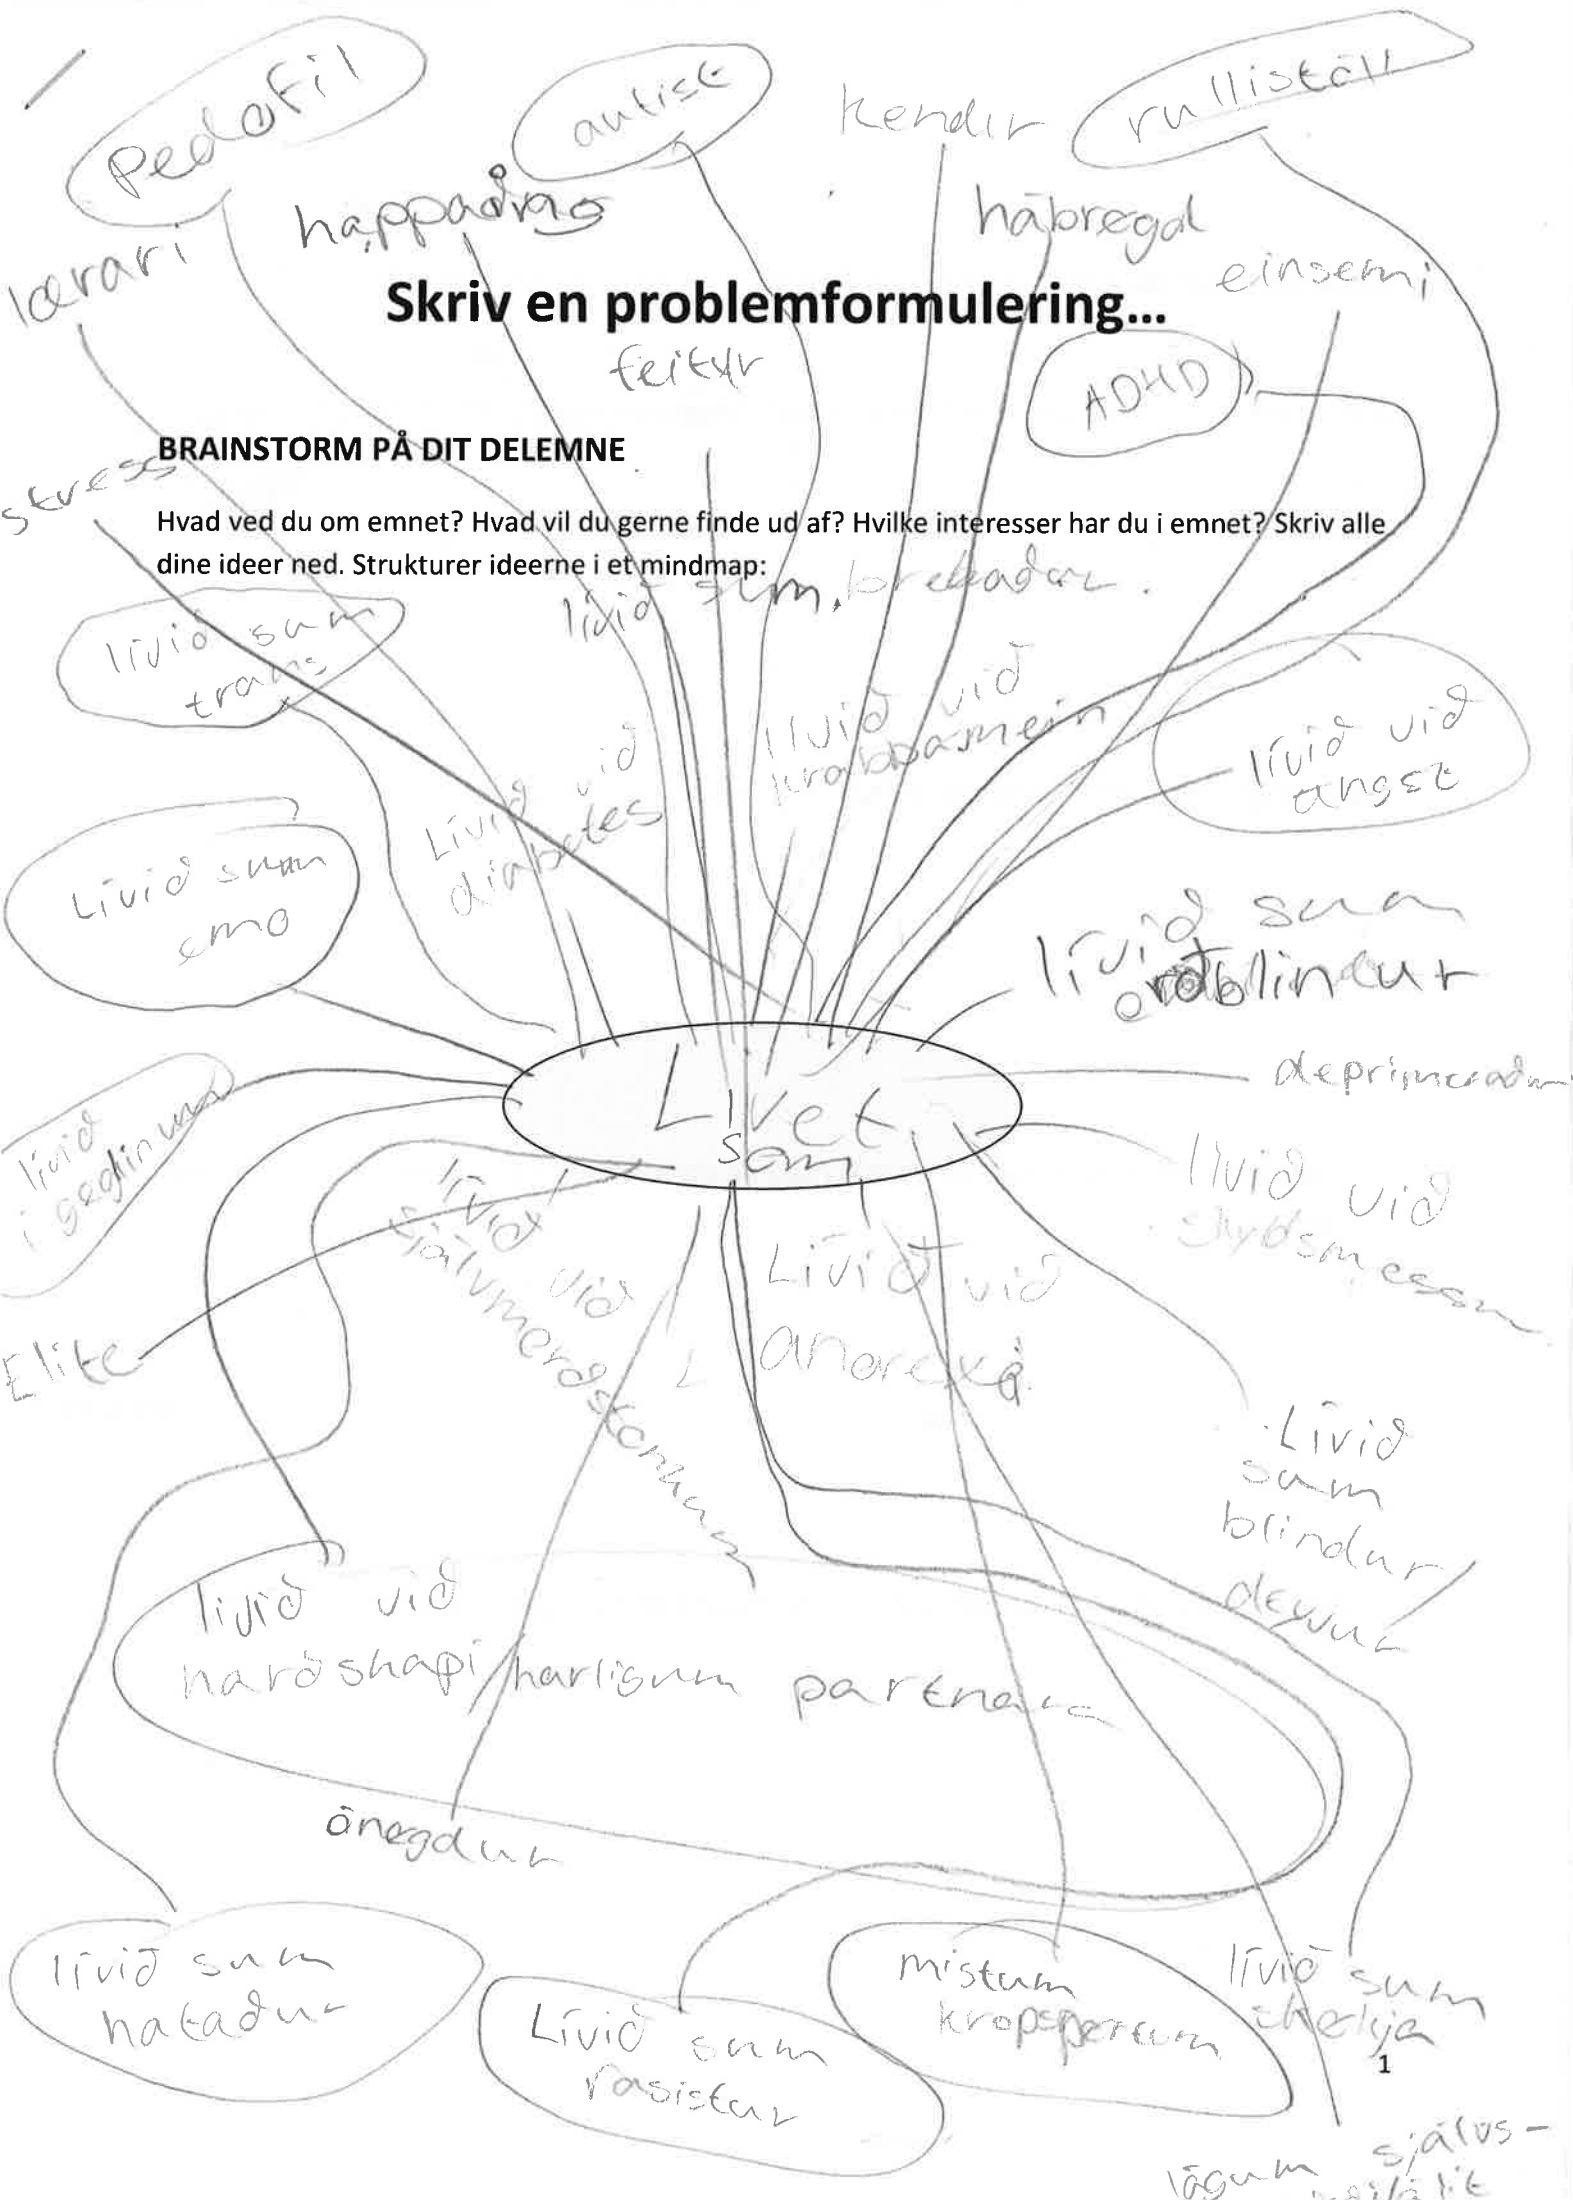 pedofil
autist
kendir
rullistól
happadrag
hábregd
lærari
einsemi
Skriv en problemformulering...
feitur
ADHD
BRAINSTORM PÅ DIT DELEMNE
stress
Hvad ved du om emnet? Hvad vil du gerne finde ud af? Hvilke interesser har du i emnet? Skriv alle
dine ideer ned. Strukturer ideerne i et mindmap:
lívið sum
lívið sum
trans
lívið við
krabbamein
lívið við
angst
Lívið við
diabetes
Lívið sum
emo
lívið sum
orðblindur
Livet
som
deprimeraður
lívið
í gøglinum
lívið við
lívið við
sjálvmorðstankum
Lívið við
anorexi
Elite
Lívið
sum
blindur/
deyvur
lívið við
harðskapi/harligum partnara
ónøgdur
lívið sum
hataður
Lívið sum
rasistur
mistum
kropspørtum
lívið sum
skøkja
1
lágum sjálvs-